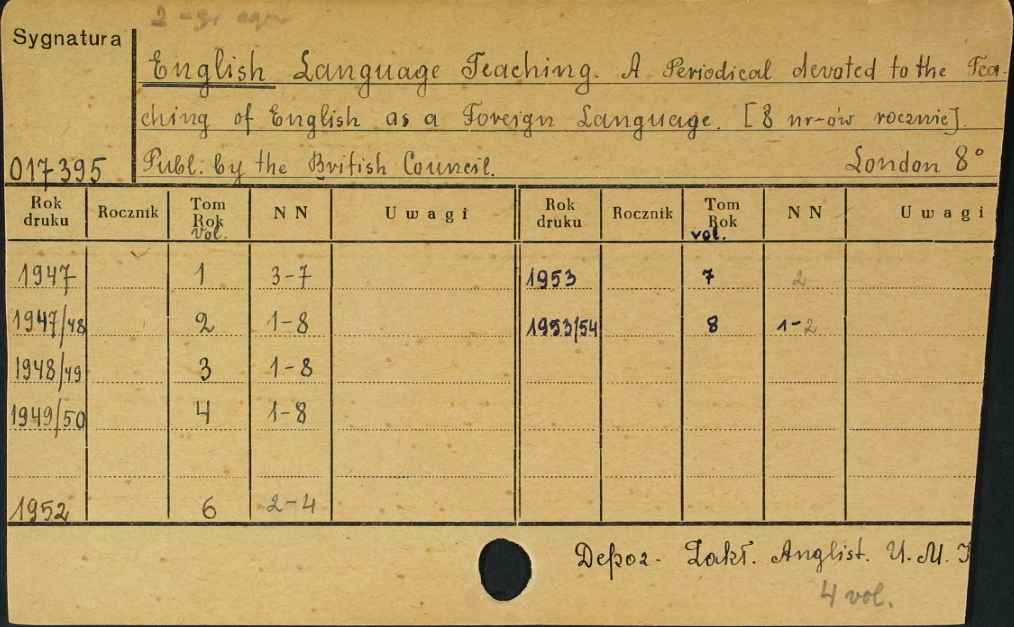 2
Sygnatura
English Language Teaching. A Periodical devoted to the Tea-
ching of English as a Foreign Language. [8 nr-ów rocznie].
017395 Publ. by the British Council. London 8°
Rok druku Rocznik Tom Rok vol. N N Uwagi Rok druku Rocznik Tom Rok vol. N N Uwagi
1947 1 3-7 1953 7 2
1947/48 2 1-8 1953/54 8 1-2
1948/49 3 1-8
1949/50 4 1-8
1952 6 2-4
Depoz. Zakł. Anglist. U.M.
4 vol.